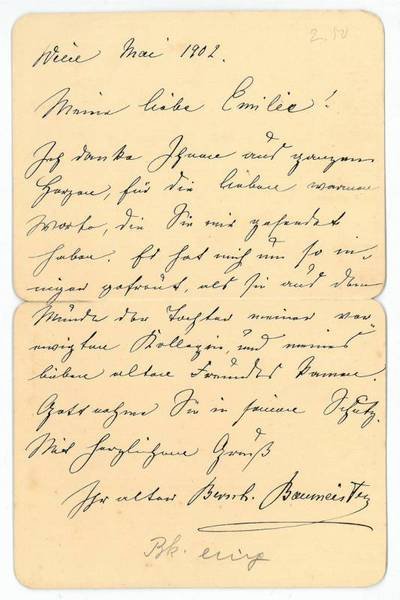 Wien Mai 1902.
2.50
Meine liebe Emilie!
Ich danke Ihnen aus ganzem
Herzen, für die lieben warmen
Worte, die Sie mir gesendet
haben. Es hat mich um so in-
niger gefreut, als sie aus dem
Munde der Tochter meiner ver-
ewigten Kollegin, und meines
lieben alten Freundes kamen.
Gott nehme Sie in seinen Schutz.
Mit herzlichem Gruß
Ihr alter Bernh. Baumeister
Bk.